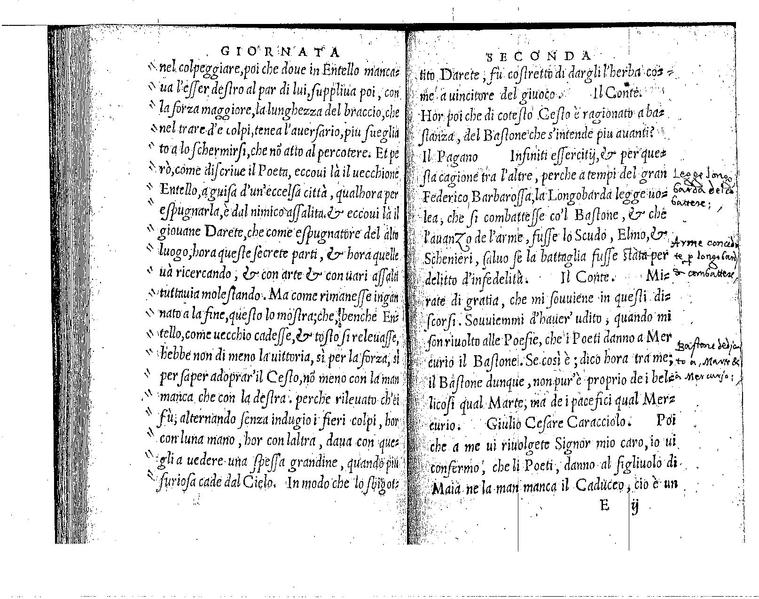 GIORNATA
nel colpeggiare, poi che doue in Entello manca-
ua l'esser destro al par di lui, suppliua poi, con
la forza maggiore, la lunghezza del braccio, che
nel trare d'e colpi, tenea l'auersario, piu sueglia
to a lo schermirsi, che nō atto al percotere. Et pe
rò, come discriue il Poeta, eccoui là il uecchione
Entello, a guisa d'un'eccelsa città, qualhora per
espugnarla, è dal nimico assalita, & eccoui là il
giouane Darete, che come espugnatore del alto
luogo, hora queste secrete parti, & hora quelle
uà ricercando, & con arte & con uari assalti
tuttauia molestando. Ma come rimanesse ingan
nato a la fine, questo lo mostra; che, benche En-
tello, come uecchio cadesse, & tosto si releuasse,
hebbe non di meno la uittoria, sì per la forza, sì
per saper adoprar'il Cesto, nō meno con la man
manca, che con la destra. perche rileuato ch'ei
fù, alternando senza indugio i fieri colpi, hor
con l'una mano, hor con laltra, daua con que-
gli a uedere una spessa grandine, quando più
furiosa cade dal Cielo. In modo che lo sbigot-
SECONDA
tito Darete, fu costretto di dargli l'herba co-
me a uincitore del giuoco. Il Conte.
Hor poi che di cotesto Cesto è ragionato a ba-
stanza, del Bastone che s'intende piu auanti?
Il Pagano Infiniti essercitÿ, & per que-
sta cagione tra l'altre, perche a tempi del gran
Federico Barbarossa, la Longobarda legge uo-
lea, che si combattesse co'l Bastone, & che
l'auanzo de l'arme, fusse lo Scudo, Elmo, &
Schenieri, saluo se la battaglia fusse stata per
delitto d'infedelità. Il Conte. Mi-
rate di gratia, che mi souuiene in questi di-
scorsi. Souuiemmi d'hauer' udito, quando mi
son riuolto alle Poesie, che i Poeti danno a Mer
curio il Bastone. Se così è; dico hora tra me;
il Bastone dunque, non pur'è proprio de i bel-
licosi qual Marte, ma de i pacefici qual Mer-
curio. Giulio Cesare Caracciolo. Poi
che a me ui riuolgete Signor mio caro, io ui
confermo, che li Poeti, danno al figliuolo di
Maia ne la man manca il Caduceo, cio è un
E ij
Legge longo
barda del co
battere;
Arme
longobar
combattere
Bastone dedica
to a, Marte &
a Mercurio;